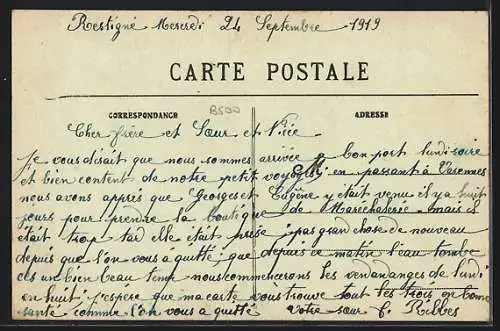 Restigné Mercredi 24 Septembre 1919
CARTE POSTALE
CORRESPONDANCE
B500
ADRESSE
Cher frère et Sœur et Nièce
Je vous disait que nous sommes arrivée a bon port lundi soire
et bien content de notre petit voyage, en passant à Varennes
nous avons appris que Georges et Eugène y était venu il y a huit
jours pour prendre la boutique de Maréchalerie mais il
était trop tard elle était prise pas grand chose de nouveau
depuis que l'on vous a quitté que depuis ce matin l'eau tombe
els un bien beau temp nous commencerons les vendanges de lundi
en huit j'espère que ma carte vous trouve tout les trois en bonne
santé comme l'on vous a quitté votre sœur C. Ribbes